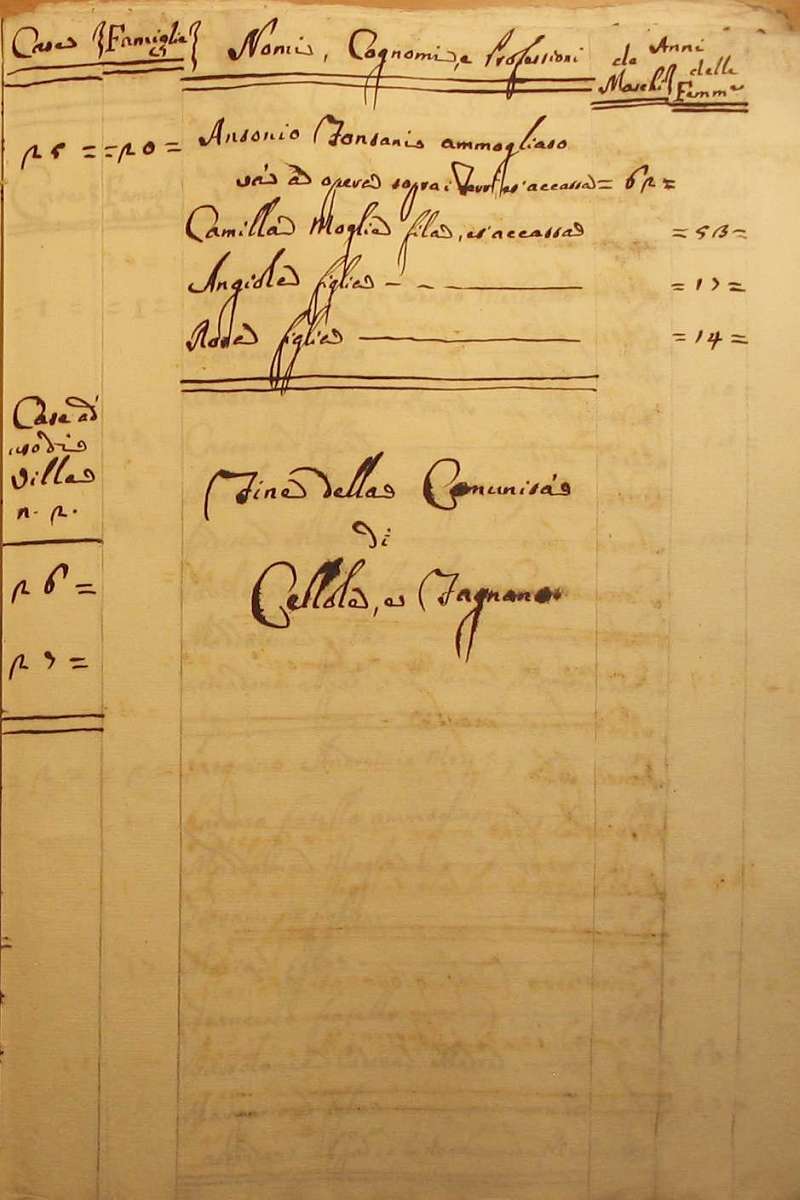 Case Famiglie Nomi, Cognomi, e Professioni Anni
de Maschi delle Femme
25 = = 20 = Antonio Fontani ammogliato
và ad opere sopra i Terri, et accatta = 62 =
Camilla Moglie fila, et accatta = 53 =
Angiola figlia = 17 =
Rosa figlia = 14 =
Case ad
uso di
Villa
n. 2.
Fine della Comunità
di
Cellole, e Fagnano
26 =
27 =